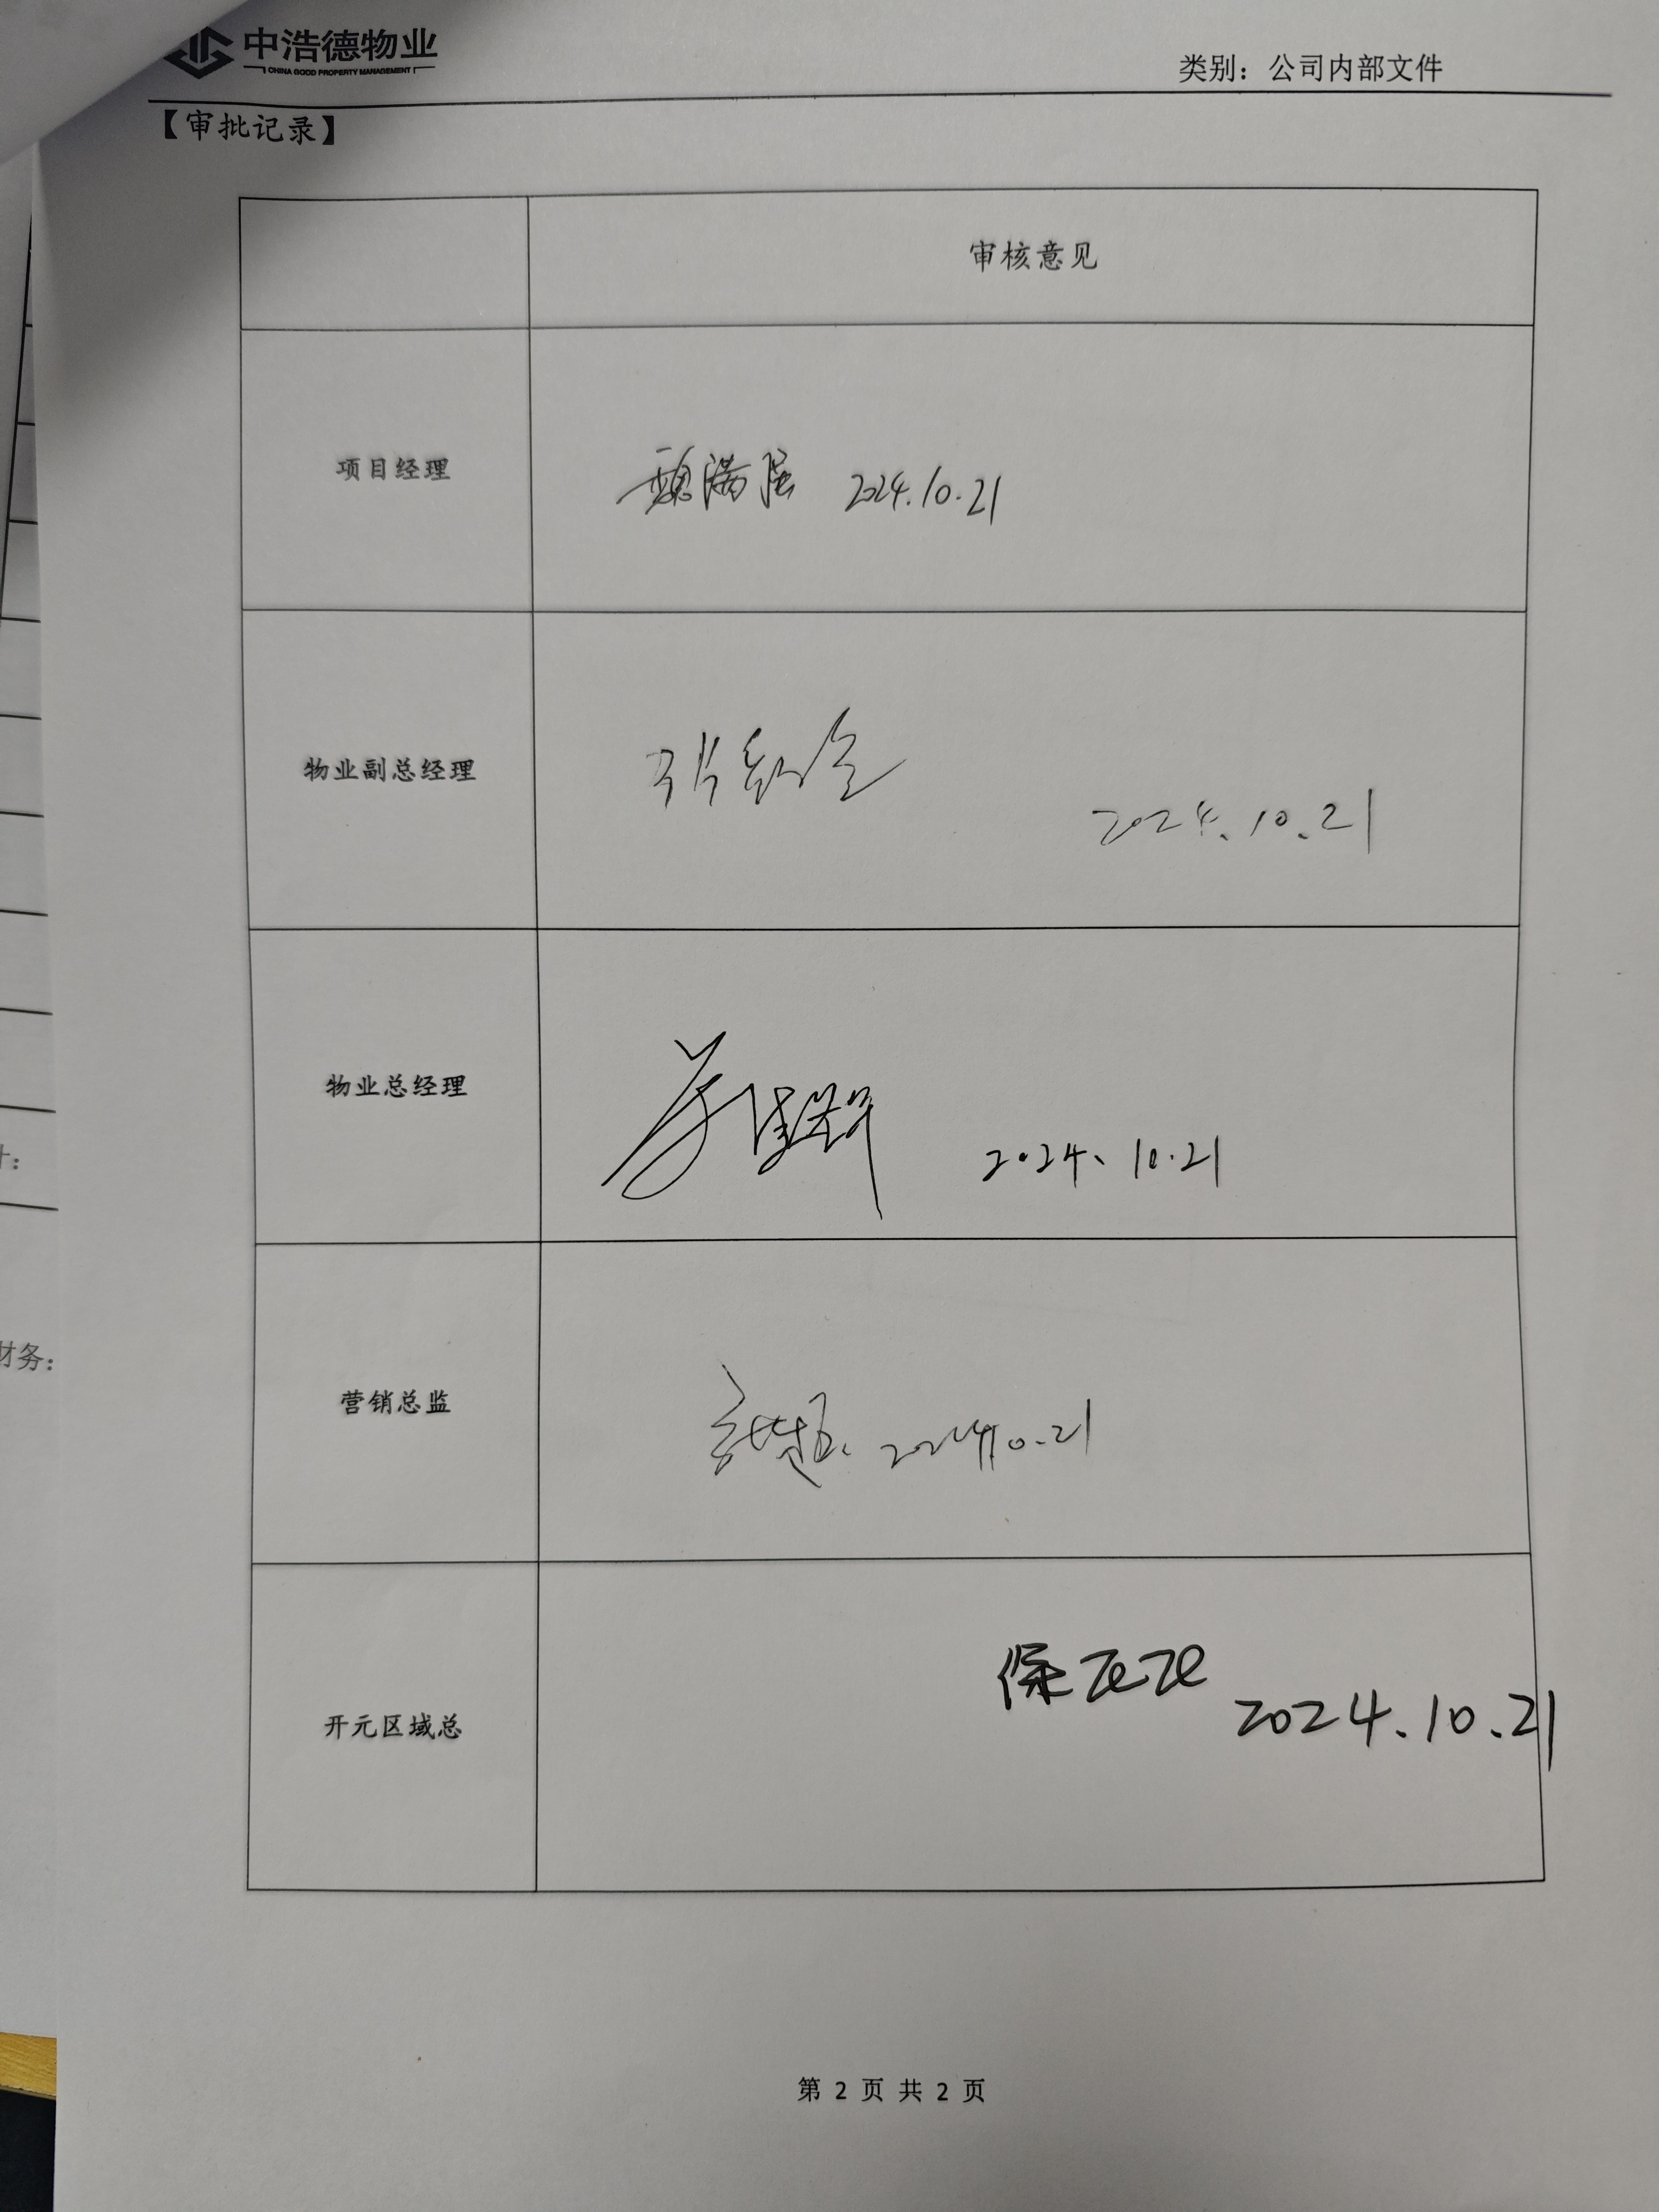 中浩德物业
CHINA GOOD PROPERTY MANAGEMENT
类别：公司内部文件
【审批记录】
审核意见
项目经理
2024.10.21
物业副总经理
2024.10.21
物业总经理
2024、10.21
营销总监
2024.10.21
财务：
开元区域总
2024.10.21
第 2 页 共 2 页